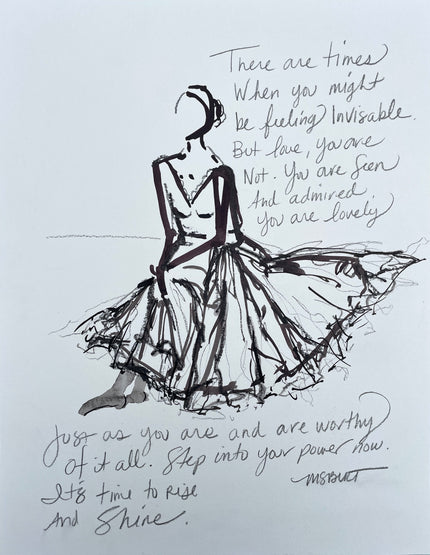 There are times
When you might
be feeling Invisable.
But love, you are
Not. You are Seen
And admired.
You are lovely
Just as you are and are worthy
of it all. Step into your power now.
It's time to Rise
And Shine.